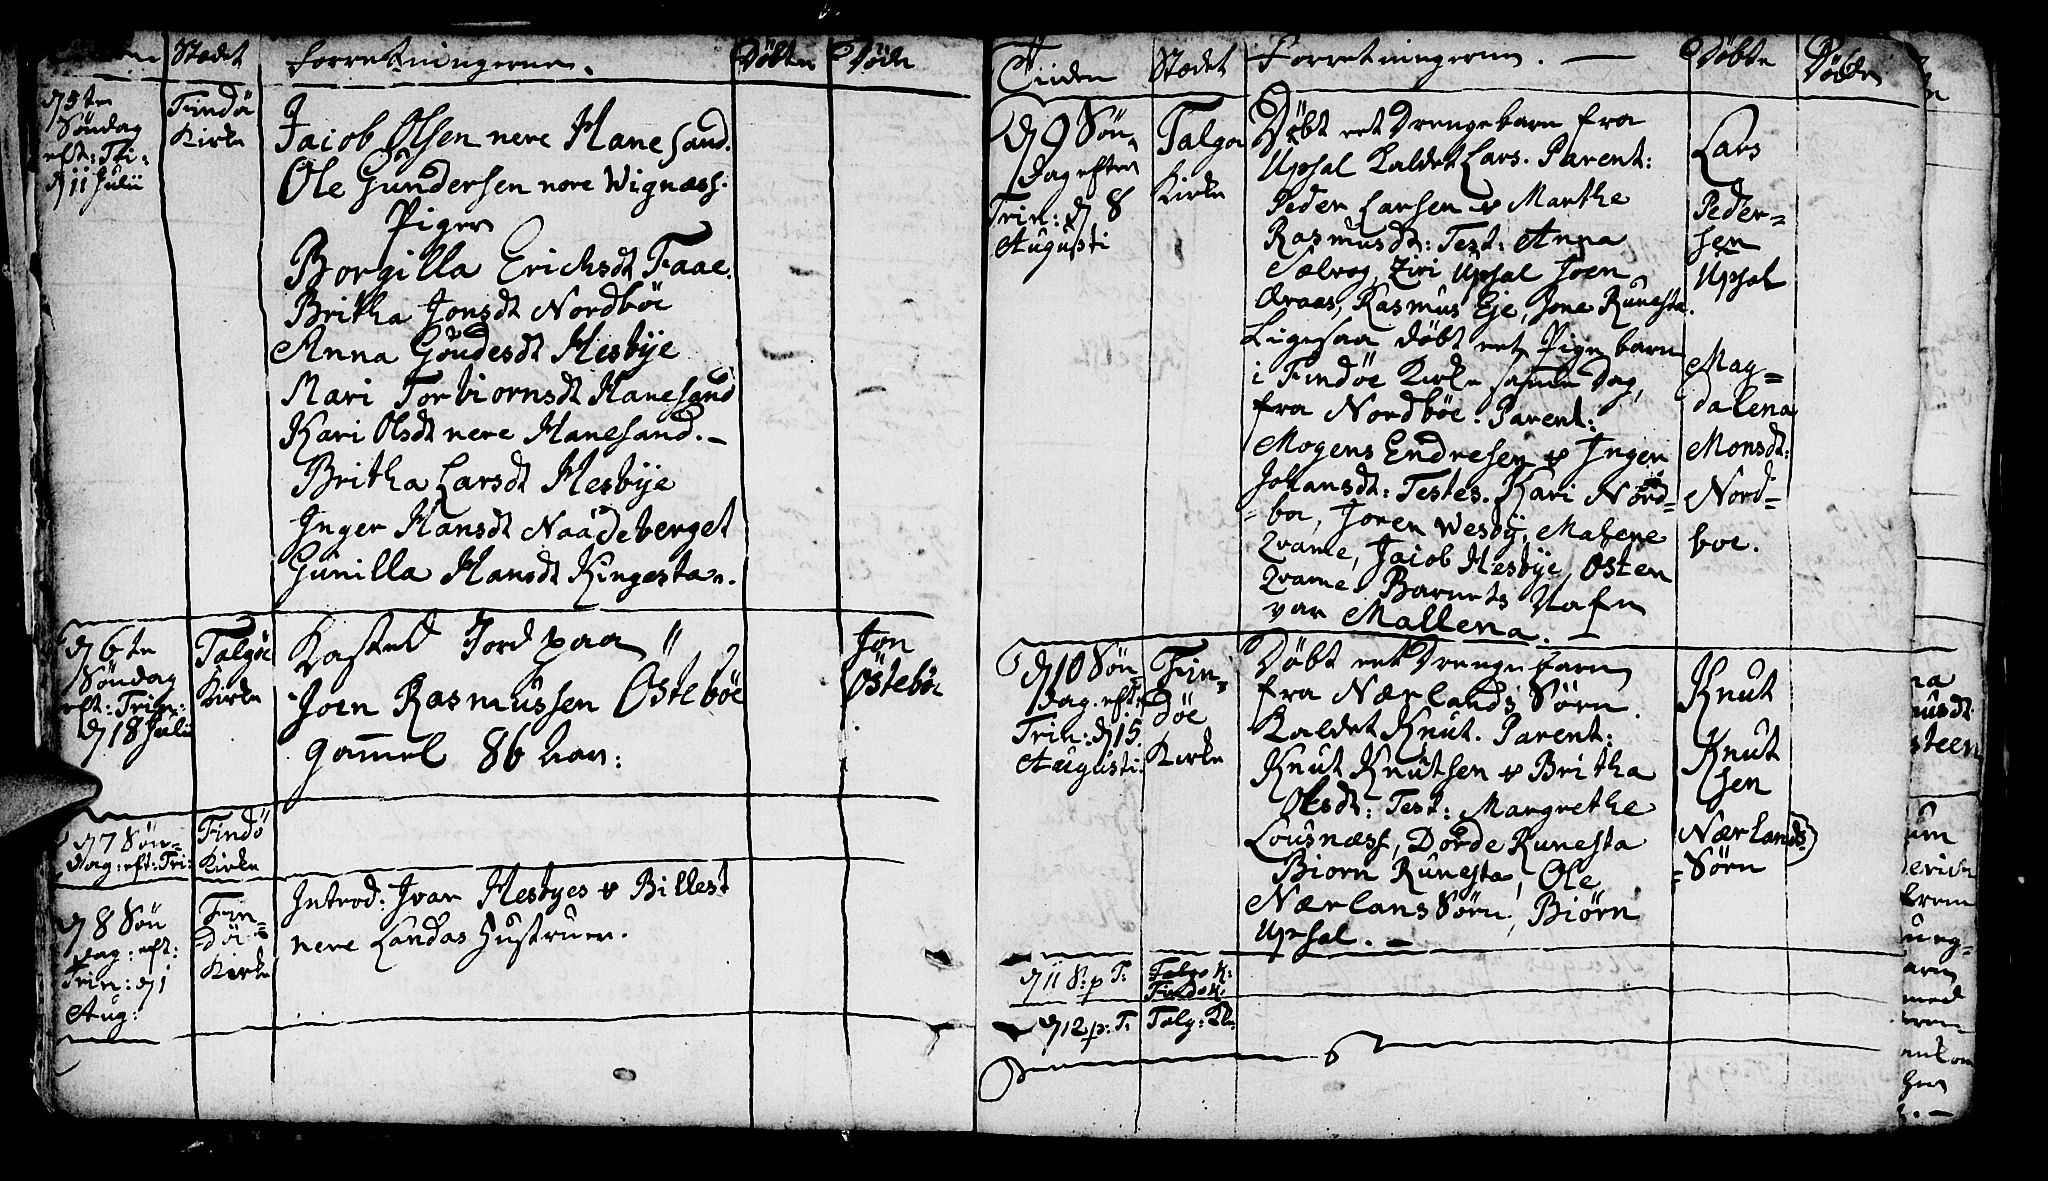 Stædet Forretningerne. Döbte Döde
d 5te
Söndag
eft: Tri:
d 11 Julii
Findö
Kirke
Jacob Olsen nere Hanesand.
Ole Gundersen nore Wignæss.
Piger
Borgilla Erichsdt Faae.
Britha Jonsdt Nordböe
Anna Göudesdt Hesbÿe
Mari Torbiornsdt Hanesand
Kari Olsdt nere Hanesand. –
Britha Larsdt Hesbÿe
Inger Hansdt Naadeberget
Gunilla Hansdt Ringesta.
d 6te
Söndag
eft: Trin:
d 18 Julii
Talgöe
Kirke
Kasted Jord paa
Joen Rasmussen Östeböe
gammel 86 aar:
Jon
Östeböe
d 7 Sön-
dag: eft: Tri:
Findö
Kirke
d 8 Sön
dag: eft:
Trin: d 1
Aug:
Fin-
dö-
Kirke
Introd: Ivar Hesbyes & Billest
nere Landas Hustruer.
Tiiden Stædet Forretningerne. – Döbte Döde
d 9 Søn-
dag efter
Trin: d 8
Augusti
Talgø
Kirke
Døbt eet Drengebarn fra
Upsal Kaldet Lars. Parent:
Peder Larsen & Marthe
Rasmusdt: Test: Anna
Sælvog, Ziri Upsal Joen
Aaraas, Rasmus Eje, Jone Runesta.
Ligesaa døbt eet Pige barn
i Findöe Kirke samme Dag,
fra Nordböe. Parent:
Mogens Endresen & Inger
Johansdt: Testes. Kari Nord-
bo, Joren Wesbÿ, Malene
Qvame, Jacob Hesbÿe, Östen
Qvame, Barnets Nafn
var Mallena. –
Lars
Peder=
sen
Upsal
Mag=
dalena
Monsdt:
Nord-
boe.
d 10 Søn-
dag. eft:
Trin: d 15.
Augusti:
Fin-
döe
Kirke
Döbt eet Drenge barn
fra Nærlands Sörn.
Kaldet Knut. Parent:
Knut Knutsen & Britha
Olsdt: Test: Margrethe
Lousnæss, Dorde Runesta
Biorn Runesta, Ole
Nærlans Sörn, Biörn
Upsal. –
Knut
Knut
sen
Nærlands
= Sörn
d 11 S: p T: Talgo K:
Findo K:
d 12 p: T: Talg: K: